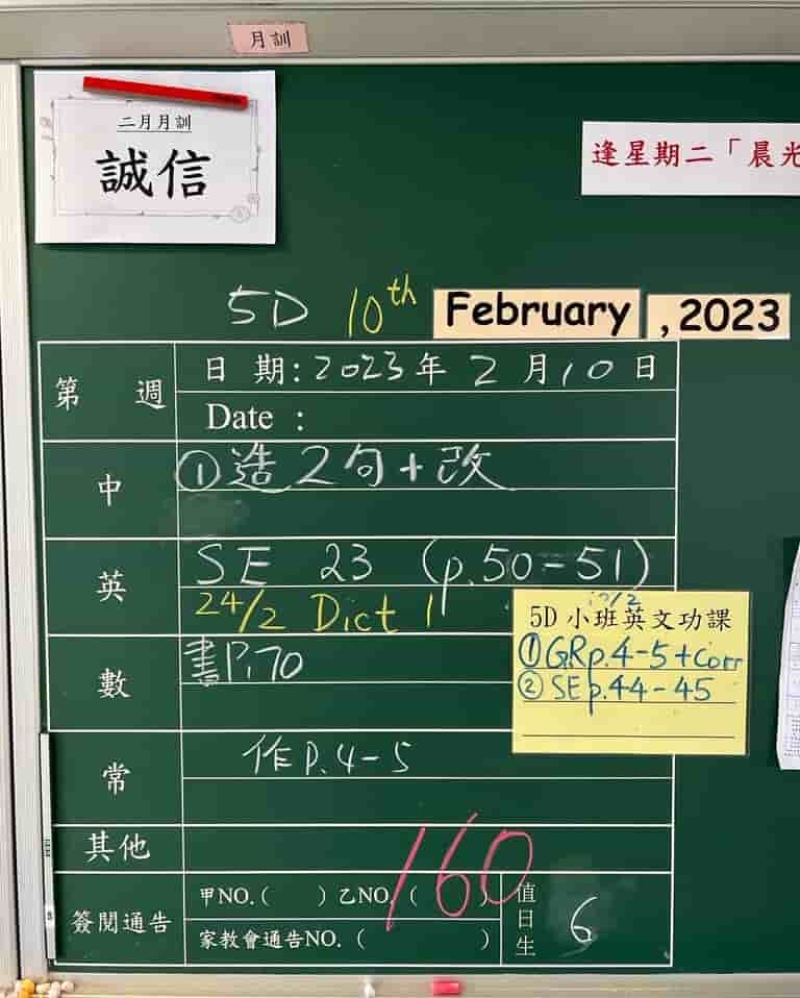 月訓
二月月訓
誠信
逢星期二「晨光
5D 10th February , 2023
第 週
日 期:2023年 2 月10日
Date :
中
①造2句+改
英
SE 23 (p.50-51)
24/2 Dict 1
5D 小班英文功課
①GRp.4-5+Corr
②SEp.44-45
數
書P.70
常
作P.4-5
其他
160
簽閱通告
甲NO.( ) 乙NO.( )
家教會通告NO. ( )
值日生
6